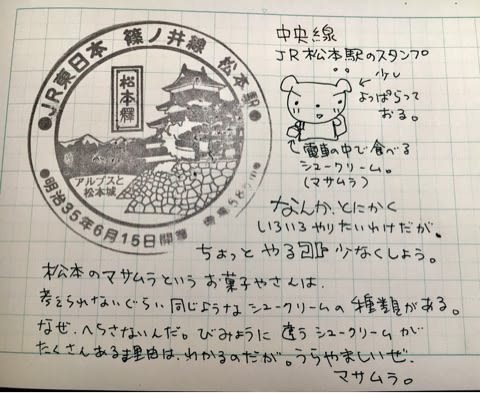 ●JR東日本 篠ノ井線 松本駅●
松本驛
アルプスと
松本城
明治35年6月15日開業
中央線
JR松本駅のスタンプ
少し
よっぱらって
おる。
電車の中で食べる
シュークリーム。
(マサムラ)
なんか、とにかく
いろいろやりたいわけだが。
ちょっと やる
少なくしよう。
松本のマサムラというお菓子やさんは、
考えられないぐらい同じようなシュークリームの種類がある。
なぜ、へらさないんだ。びみょうに違うシュークリームが
たくさんある理由は、わかるのだが。うらやましいぜ、
マサムラ。